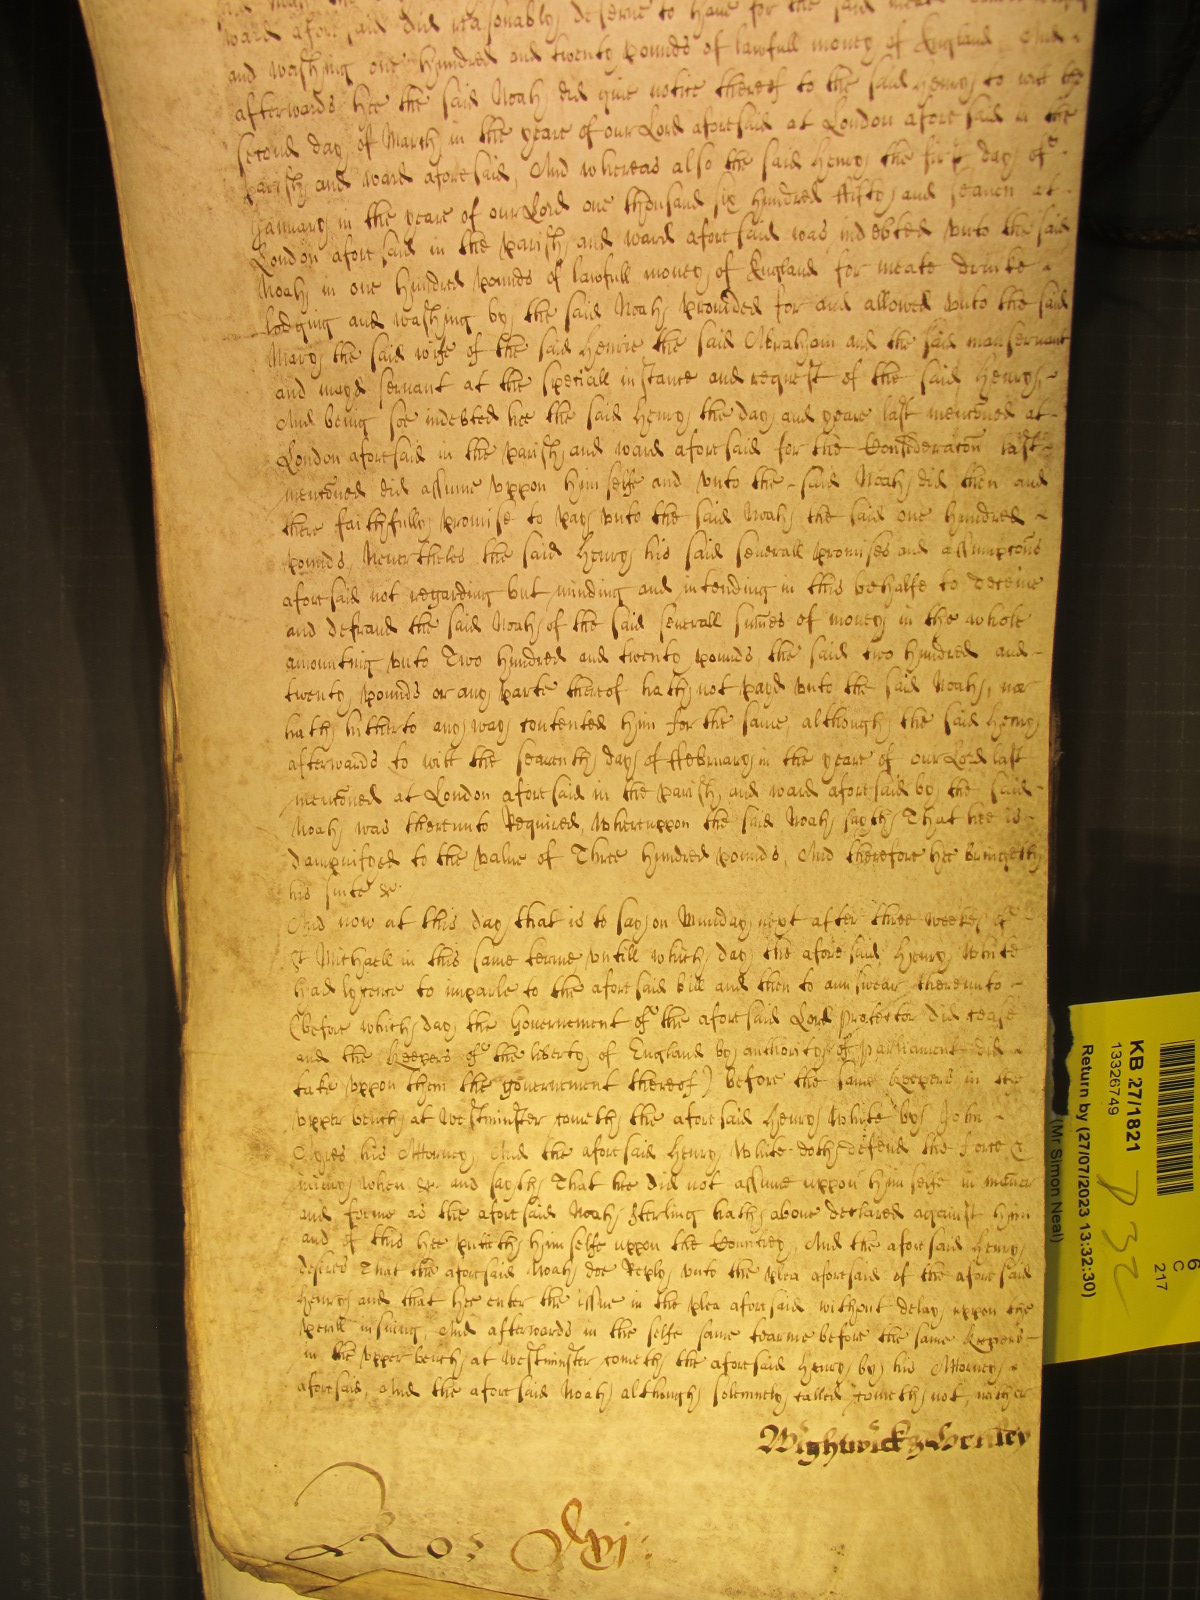 ward afore said did reasonably deserve to have for the said meate
and washing one Hundred and twenty pounds of lawfull money of England And
afterwards hee the said Noah did give notice thereof to the said Henry to wit the
second day of March in the yeare of our Lord aforesaid at London afore said in the
parish and ward aforesaid, And whereas also the said Henry the first day of
January in the yeare of our Lord one thousand six hundred ffifty and seaven at
London afore said in the parish and ward afore said was indebted vnto the said
Noah in one Hundred pounds of lawfull money of England for meate drinke
lodging and washing by the said Noah provided for and allowed vnto the said
Mary the said wife of the said Henrie the said Abraham and the said manservant
and mayd servant at the speciall instance and request of the said Henry,
And being soe indebted hee the said Henry the day and yeare last mencõned at
London aforesaid in the parish and ward aforesaid for the Consideracõn last
mencõned did assume vppon himselfe and vnto the said Noah did then and
there faithfully promise to pay vnto the said Noah the said one hundred
pounds, Neverthelesse the said Henry his said severall promises and assumpcõns
aforesaid not regarding but minding and intending in this behalfe to deceive
and defraud the said Noah of the said severall sum̃es of money in the whole
amounting vnto Two hundred and twenty pounds, the said two hundred and
twenty pounds or any parte thereof hath not payd vnto the said Noah, nor
hath hitherto any way contented him for the same, although the said Henry
afterwards to witt the seaventh day of ffebruary in the yeare of our Lord last
mencõned at London aforesaid in the parish and ward aforesaid by the said
Noah was thereunto Required, Whereuppon the said Noah sayth That hee is
dampnifyed to the value of Three hundred pounds, And therefore hee bringeth
his suite &c
And now at this day that is to say on Munday next after three weekes of
St Michaell in this same terme vntill which day the afore said Henry White
had lycence to imparle to the aforesaid bill and then to aunswear thereunto
(before which day the Government of the aforesaid Lord Protector did cease
and the Keepers of the liberty of England by authority of Parliament did
take vppon them the government thereof) before the same keepers in the
vpper bench at Westminster cometh the aforesaid Henry White by John
his Attorney, And the aforesaid Henry White doth defend the force &
iniury when &c and sayth That hee did not assume vppon himselfe in maner
and forme as the aforesaid Noah Sterling hath above declared against him
and of this hee putteth himselfe uppon the Countrey, And the aforesaid Henry
desires That the aforesaid Noah doe Reply vnto the plea aforesaid of the aforesaid
Henry and that hee enter the issue in the plea aforesaid without delay uppon the
perill insuing, And afterwards in the selfe same tearme before the same Keepers
in the vpper bench at Westminster cometh the aforesaid Henry by his Attorney
aforesaid, And the aforesaid Noah although solemnely called cometh not, neither
Wightwick & Henley
Ro:
KB 27/1821
13326749
Return by (27/07/2023 13:32:30)
(Mr Simon Neal)
6
C
217